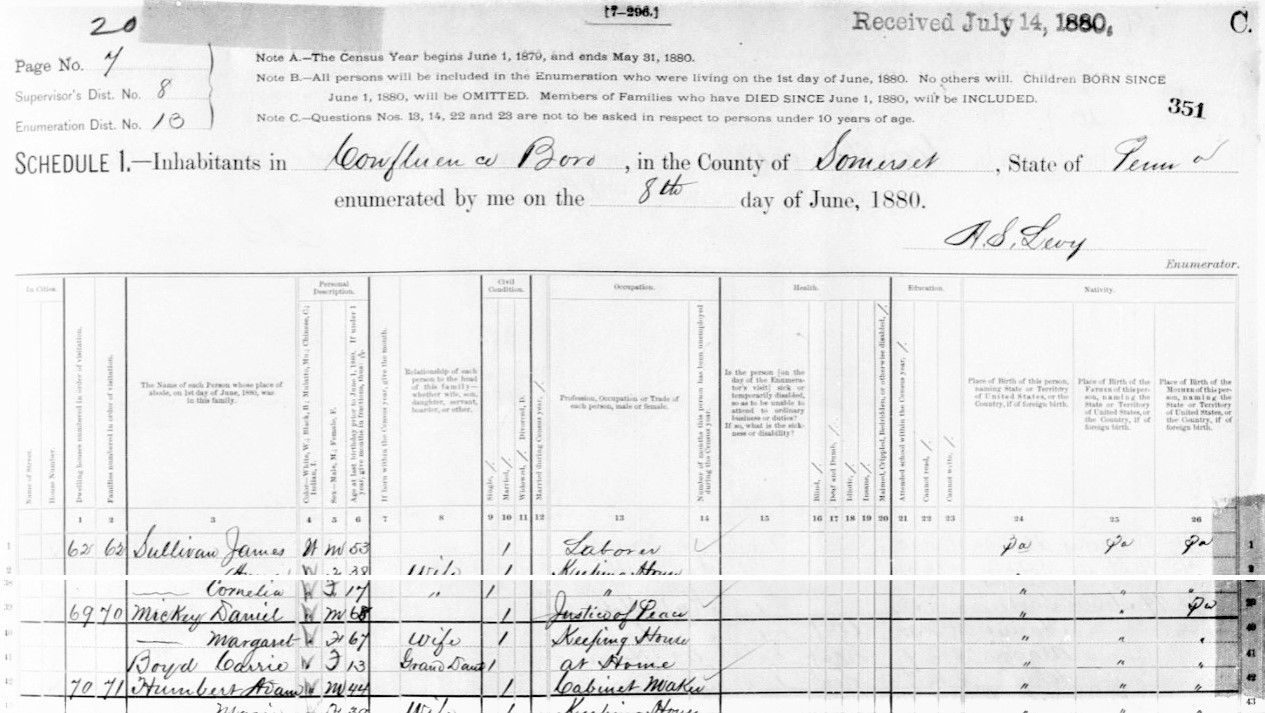 20
[7-296.]
Received July 14, 1880.
C.
Page No. 7
Supervisor's Dist. No. 8
Enumeration Dist. No. 13
Note A.—The Census Year begins June 1, 1879, and ends May 31, 1880.
Note B.—All persons will be included in the Enumeration who were living on the 1st day of June, 1880. No others will. Children BORN SINCE
June 1, 1880, will be OMITTED. Members of Families who have DIED SINCE June 1, 1880, will be INCLUDED.
Note C.—Questions Nos. 13, 14, 22 and 23 are not to be asked in respect to persons under 10 years of age.
351
SCHEDULE 1.—Inhabitants in Confluence Boro, in the County of Somerset, State of Penna
enumerated by me on the 8th day of June, 1880.
A.S. Levy
Enumerator.
In Cities.
Personal Description.
Civil Condition.
Occupation.
Health.
Education.
Nativity.
Name of Street.
House Number.
Dwelling houses numbered in order of visitation.
Families numbered in order of visitation.
The Name of each Person whose place of abode, on 1st day of June, 1880, was in this family.
Color—White, W.; Black, B.; Mulatto, Mu.; Chinese, C.; Indian, I.
Sex—Male, M.; Female, F.
Age at last birthday prior to June 1, 1880. If under 1 year, give months in fractions, thus:
If born within the Census year, give the month.
Relationship of each person to the head of this family—whether wife, son, daughter, servant, boarder, or other.
Single, /.
Married, /.
Widowed, /. Divorced, D.
Married during Census year, /.
Profession, Occupation or Trade of each person, male or female.
Number of months this person has been unemployed during the Census year.
Is the person [on the day of the Enumerator's visit] sick or temporarily disabled, so as to be unable to attend to ordinary business or duties? If so, what is the sickness or disability?
Blind, /.
Deaf and Dumb, /.
Idiotic, /.
Insane, /.
Maimed, Crippled, Bedridden, or otherwise disabled, /.
Attended school within the Census year, /.
Cannot read, /.
Cannot write, /.
Place of Birth of this person, naming State or Territory of United States, or the Country, if of foreign birth.
Place of Birth of the FATHER of this person, naming the State or Territory of United States, or the Country, if of foreign birth.
Place of Birth of the MOTHER of this person, naming the State or Territory of United States, or the Country, if of foreign birth.
1 2 3 4 5 6 7 8 9 10 11 12 13 14 15 16 17 18 19 20 21 22 23 24 25 26
1 62 62 Sullivan James W M 53 / Laborer Pa Pa Pa 1
2 W F 38 Wife / Keeping House 2
—— Cornelia W F 17 " / " " " "
69 70 Mickey Daniel W M 68 / Justice of Peace " " Pa 39
40 —— Margaret W F 67 Wife / Keeping House " " " 40
41 Boyd Carrie W F 13 Grand Daut / at Home " " " 41
42 70 71 Humbert Adam W M 44 / Cabinet Maker " " " 42
Wife Keeping House 43